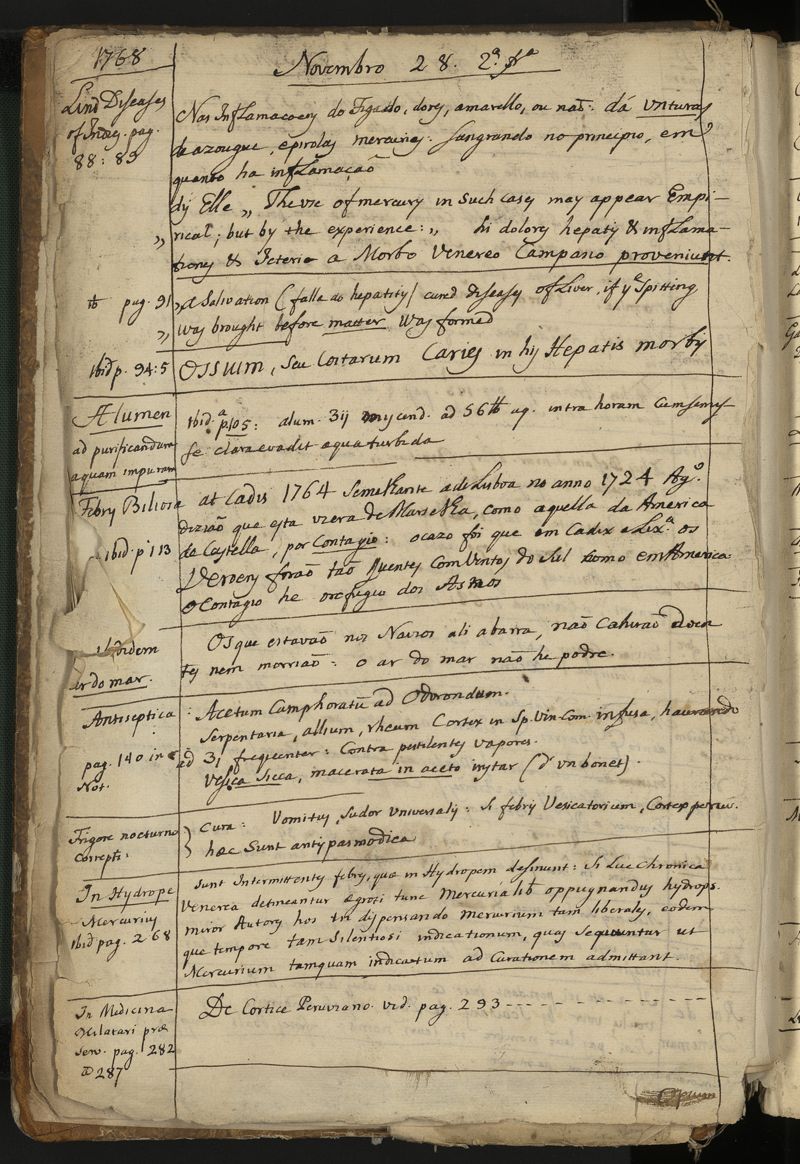 1768
Novembro 28. 2ª fª
Lind Diseases
of Indies. pag.
88: 89
Nas Inflamacoens do Figado, dores, amarello, ou naõ: dá vnturas
de azougue, epirolas mercuries: sangrando no principio, em
quanto ha inflamaçaõ
diz Elle „ The vse of mercury in such cases may appear Empi-
„ rical; but by the experience: „ hi dolores hepatis & inflama-
tiones & Icterie a Morbo Venereo Campano proveniunt.
ib pag. 91 „ a Salivation (falla do hepatitis) cured diseases of Liver, if yᵉ Spitting
„ was brought before matter was formed
Ibid p. 94:5 OSSIUM, seu Costarum Caries in his Hepatis morbis
Alumen
ad purificandum
aquam impuram
Ibid. p. 105: alum. 3ij ad 56 lb aq. intra horam cum semis-
se clara evadit aqua turbida
Febris Biliosa at Cadis 1764 Semelhante a de Lisboa no anno 1724 Ag.º
diziaõ que esta viera de Marselha, como aquella da America
Ibid. p 113
de Castella, por Contagio: o cazo foi que em Cadix e Lix.ª os
Veroens foraõ taõ quentes com Ventos do Sul como em America:
o Contagio he o refugio dos Asnos
Ibidem
ar do mar.
Os que estavaõ nos Navios ali a barra, naõ cahiraõ doen
tes nem morriaõ: o ar do mar naõ he podre.
Antiseptica
pag. 140 in
Not.
: Acetum Camphoratũ ad Odorandum.
Serpentaria, allium, rheum Cortex in Sp. Vin. Com. infusa, hauriendo
ad 3j frequenter: Contra pestilentes vapores.
Vesica Sicca, macerata in aceto instar (d'vn bonet).
Frigore nocturno
correpti:
Cura: Vomitus, Sudor Universalis: Si febris Vesicatorium, Cortex peruv.
hæc Sunt antispasmodica
In Hydrope
Mercurius
Ibid pag. 268
Sunt Intermittentes febres, quæ in Hydropem desinunt: Si Lue Chronica
Venerea detineantur ægroti tunc Mercuriali oppugnandus hydrops.
miror Autores hos in dispensando Mercurium tam liberales, eodem
que tempore tam Silentiosi indicationum, quas Sequuntur ut
Mercurium tamquam indicatum ad Curationem admittant.
In Medicina
Militari præ
serv. pag. 282
a 287
De Cortice Peruviano. vid. pag. 293